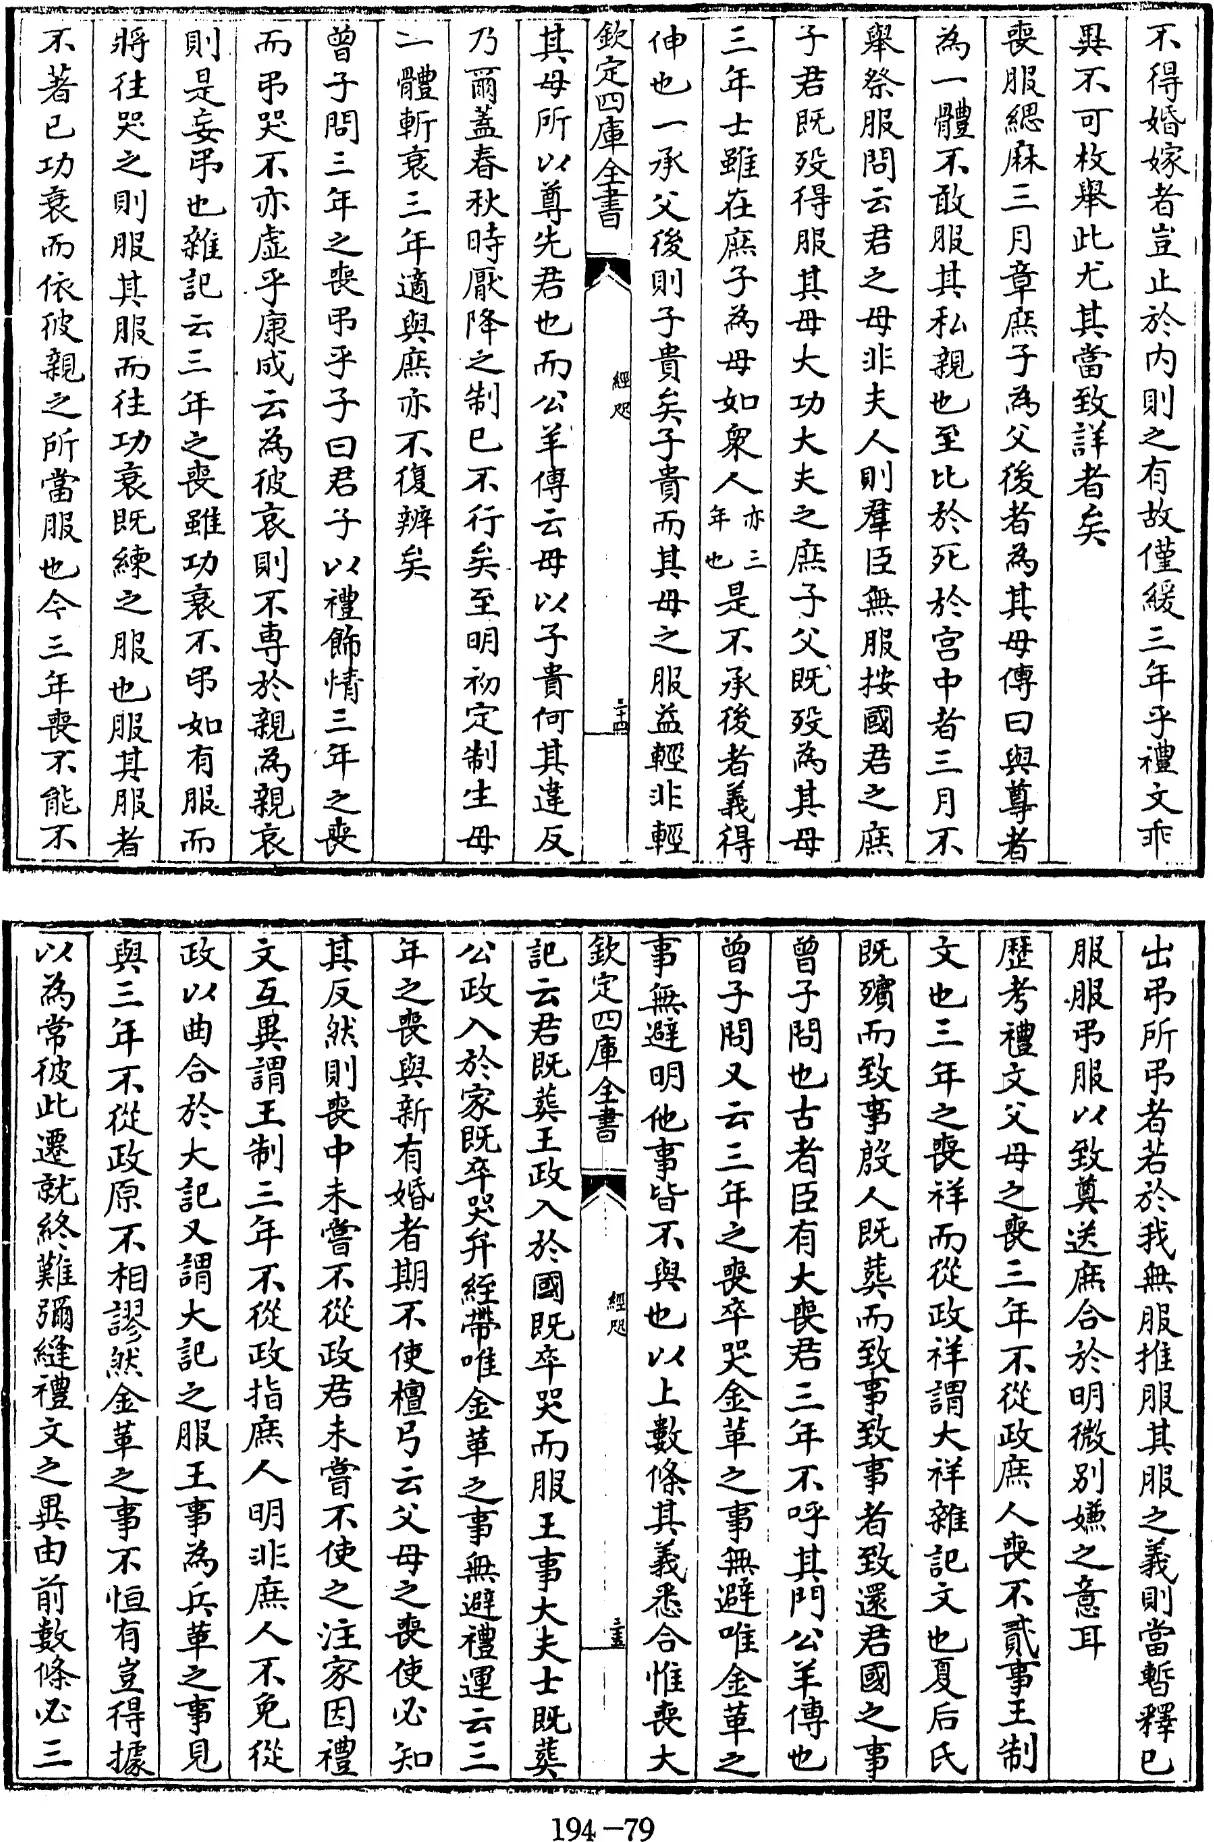 不得婚嫁者豈止於内則之有故僅緩三年乎禮文乖
異不可枚舉此尤其當致詳者矣
喪服緦麻三月章庶子為父後者為其母傳曰與尊者
為一體不敢服其私親也至比於死於宫中者三月不
舉祭服問云君之母非夫人則羣臣無服按國君之庶
子君既殁得服其母大功大夫之庶子父既殁為其母
三年士雖在庶子為母如衆人亦三年也是不承後者義得
伸也一承父後則子貴矣子貴而其母之服益輕非輕
欽定四庫全書
經咫
二十四
其母所以尊先君也而公羊傳云母以子貴何其違反
乃爾蓋春秋時厭降之制已不行矣至明初定制生母
一體斬衰三年適與庶亦不復辨矣
曾子問三年之喪弔乎子曰君子以禮飾情三年之喪
而弔哭不亦虚乎康成云為彼哀則不專於親為親哀
則是妄弔也雜記云三年之喪雖功衰不弔如有服而
將往哭之則服其服而往功衰既練之服也服其服者
不著已功衰而依彼親之所當服也今三年喪不能不
出弔所弔者若於我無服推服其服之義則當暫釋已
服服弔服以致奠送庶合於明微别嫌之意耳
歷考禮文父母之喪三年不從政庶人喪不貳事王制
文也三年之喪祥而從政祥謂大祥雜記文也夏后氏
既殯而致事殷人既葬而致事致事者致還君國之事
曾子問也古者臣有大喪君三年不呼其門公羊傳也
曾子問又云三年之喪卒哭金革之事無避唯金革之
事無避明他事皆不與也以上數條其義悉合惟喪大
欽定四庫全書
經咫
二十五
記云君既葬王政入於國既卒哭而服王事大夫士既葬
公政入於家既卒哭弁絰帶唯金革之事無避禮運云三
年之喪與新有婚者期不使檀弓云父母之喪使必知
其反然則喪中未嘗不從政君未嘗不使之注家因禮
文互異謂王制三年不從政指庶人明非庶人不免從
政以曲合於大記又謂大記之服王事為兵革之事見
與三年不從政原不相謬然金革之事不恒有豈得據
以為常彼此遷就終難彌縫禮文之異由前數條必三
194-79